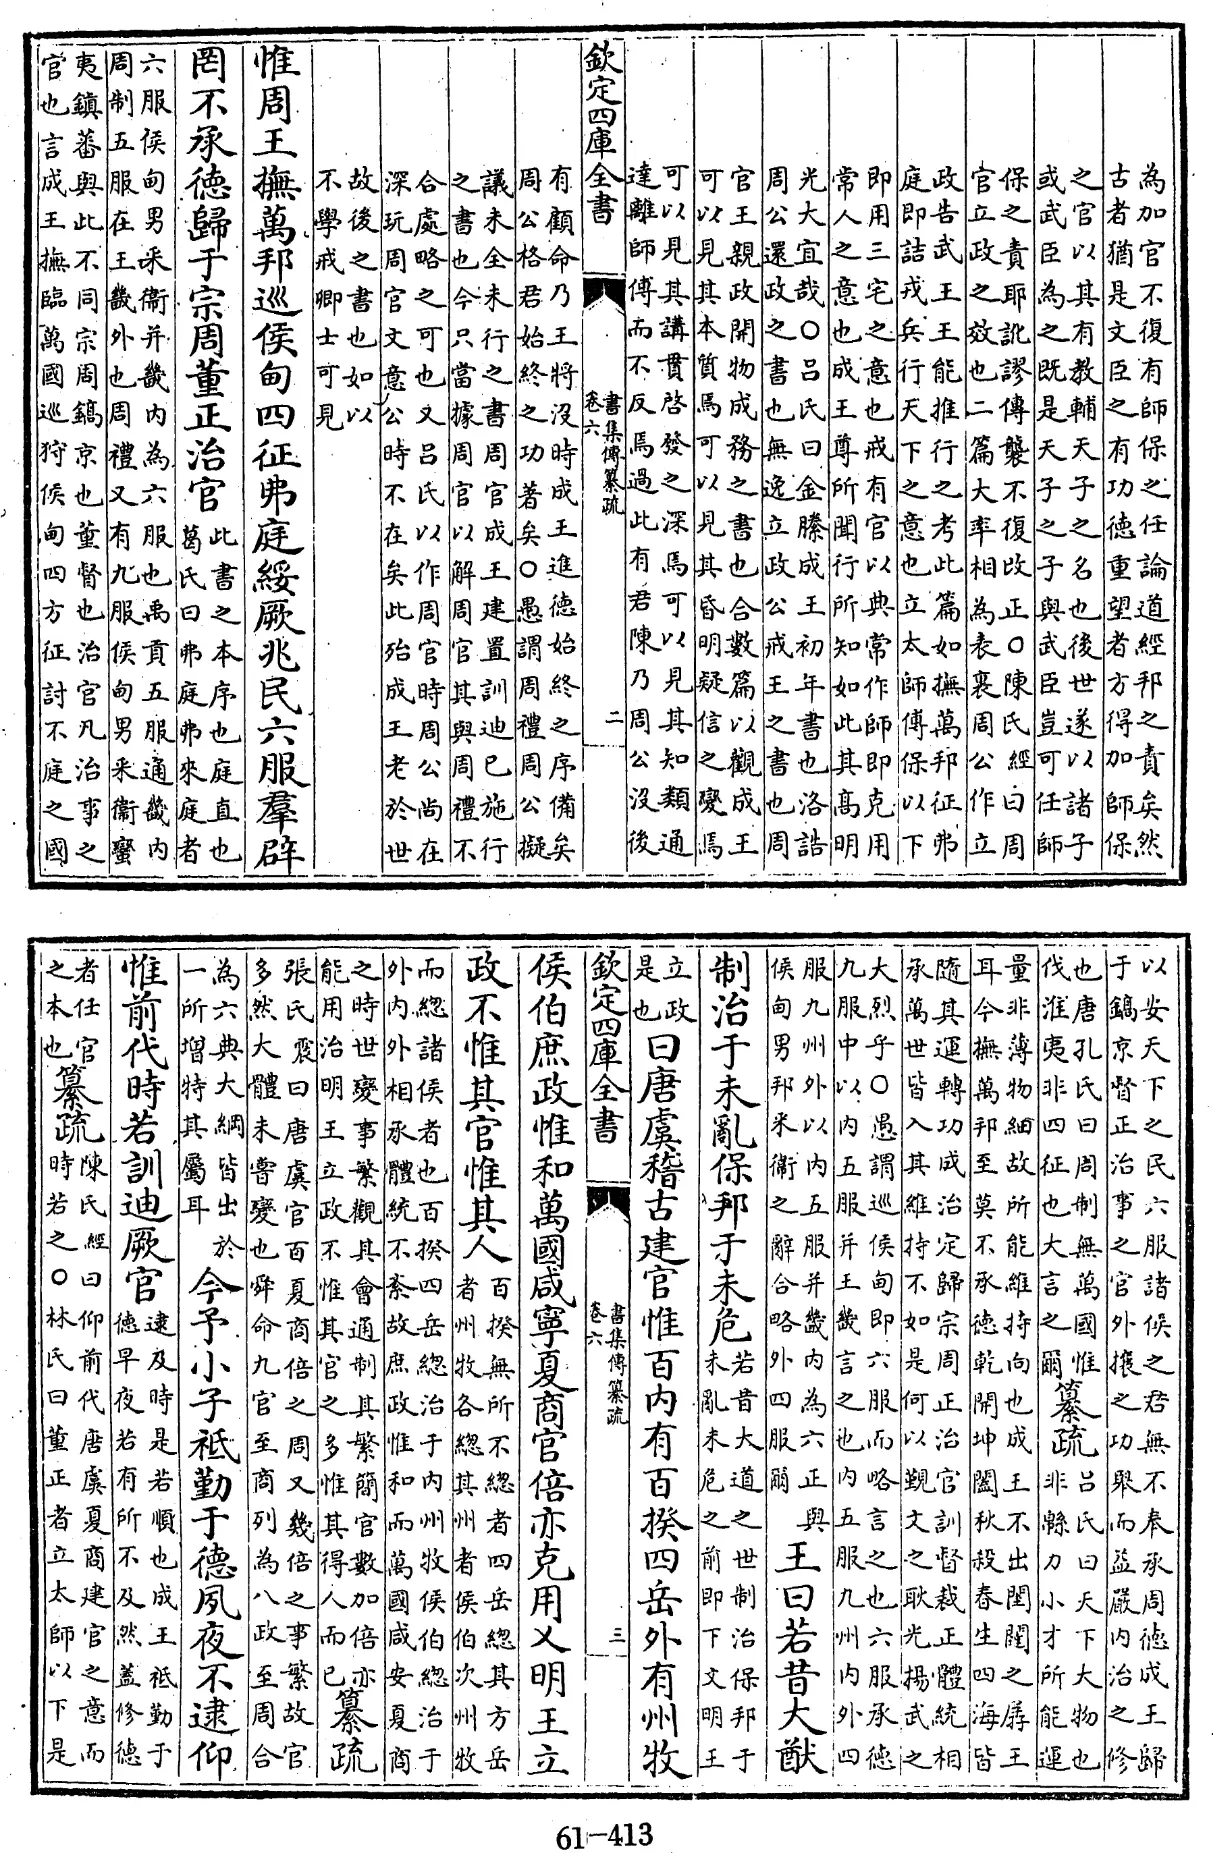 為加官不復有師保之任論道經邦之責矣然
古者猶是文臣之有功德重望者方得加師保
之官以其有教輔天子之名也後世遂以諸子
或武臣為之既是天子之子與武臣豈可任師
保之責耶訛謬傳襲不復改正○陳氏經曰周
官立政之效也二篇大率相為表裏周公作立
政告武王王能推行之考此篇如撫萬邦征弗
庭即詰戎兵行天下之意也立太師傅保以下
即用三宅之意也戒有官以典常作師即克用
常人之意也成王尊所聞行所知如此其高明
光大宜哉○呂氏曰金縢成王初年書也洛誥
周公還政之書也無逸立政公戒王之書也周
官王親政開物成務之書也合數篇以觀成王
可以見其本質焉可以見其昏明疑信之變焉
可以見其講貫啓發之深焉可以見其知類通
達離師傅而不反焉過此有君陳乃周公沒後
欽定四庫全書
書集傳纂疏
卷六
二
有顧命乃王將沒時成王進德始終之序備矣
周公格君始終之功著矣○愚謂周禮周公擬
議未全未行之書周官成王建置訓迪已施行
之書也今只當據周官以解周官其與周禮不
合處略之可也又呂氏以作周官時周公尚在
深玩周官文意公時不在矣此殆成王老於世
故後之書也如以
不學戒卿士可見
惟周王撫萬邦巡侯甸四征弗庭綏厥兆民六服羣辟
罔不承德歸于宗周董正治官
此書之本序也庭直也
葛氏曰弗庭弗來庭者
六服侯甸男采衞并畿内為六服也禹貢五服通畿内
周制五服在王畿外也周禮又有九服侯甸男采衞蠻
夷鎮蕃與此不同宗周鎬京也董督也治官凡治事之
官也言成王撫臨萬國巡狩侯甸四方征討不庭之國
以安天下之民六服諸侯之君無不奉承周德成王歸
于鎬京督正治事之官外攘之功舉而益嚴内治之修
也唐孔氏曰周制無萬國惟
伐淮夷非四征也大言之爾
纂疏
呂氏曰天下大物也
非緜力小才所能運
量非薄物細故所能維持向也成王不出閨闥之孱王
耳今撫萬邦至莫不承德乾開坤闔秋殺春生四海皆
隨其運轉功成治定歸宗周正治官訓督裁正體統相
承萬世皆入其維持不如是何以覲文之耿光揚武之
大烈乎○愚謂巡侯甸即六服而略言之也六服承德
九服中以内五服并王畿言之也内五服九州内外四
服九州外以内五服并畿内為六正與
侯甸男邦采衛之辭合略外四服爾
王曰若昔大猷
制治于未亂保邦于未危
若昔大道之世制治保邦于
未亂未危之前即下文明王
立政
是也
曰唐虞稽古建官惟百内有百揆四岳外有州牧
欽定四庫全書
書集傳纂疏
卷六
三
侯伯庶政惟和萬國咸寧夏商官倍亦克用乂明王立
政不惟其官惟其人
百揆無所不總者四岳總其方岳
者州牧各總其州者侯伯次州牧
而總諸侯者也百揆四岳總治于内州牧侯伯總治于
外内外相承體統不紊故庶政惟和而萬國咸安夏商
之時世變事繁觀其會通制其繁簡官數加倍亦
能用治明王立政不惟其官之多惟其得人而已
纂疏
張氏震曰唐虞官百夏商倍之周又幾倍之事繁故官
多然大體未嘗變也舜命九官至商列為八政至周合
為六典大綱皆出於
一所增特其屬耳
今予小子祗勤于德夙夜不逮仰
惟前代時若訓迪厥官
逮及時是若順也成王祗勤于
德早夜若有所不及然蓋修德
者任官
之本也
纂疏
陳氏經曰仰前代唐虞夏商建官之意而
時若之○林氏曰董正者立太師以下是
61-413